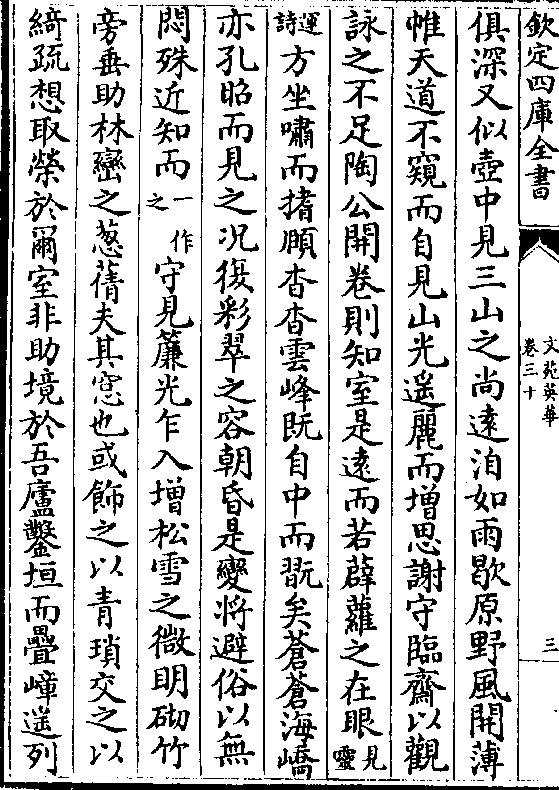 欽定四庫全書
文苑英華
卷三十
三
俱深又似壺中見三山之尚遠洎如雨歇原野風開薄
帷天道不窺而自見山光遥麗而增思謝守臨齋以觀
詠之不足陶公開卷則知室是遠而若薜蘿之在眼見靈
運詩方坐嘯而搘頤杳杳雲峰既自中而翫矣蒼蒼海嶠
亦孔昭而見之况復彩翠之容朝昏是變將避俗以無
悶殊近知而一作之守見簾光乍入增松雪之微明砌竹
旁垂助林巒之葱蒨夫其窓也或飾之以青瑣交之以
綺疏想取榮於爾室非助境於吾廬鑿垣而疊嶂遥列